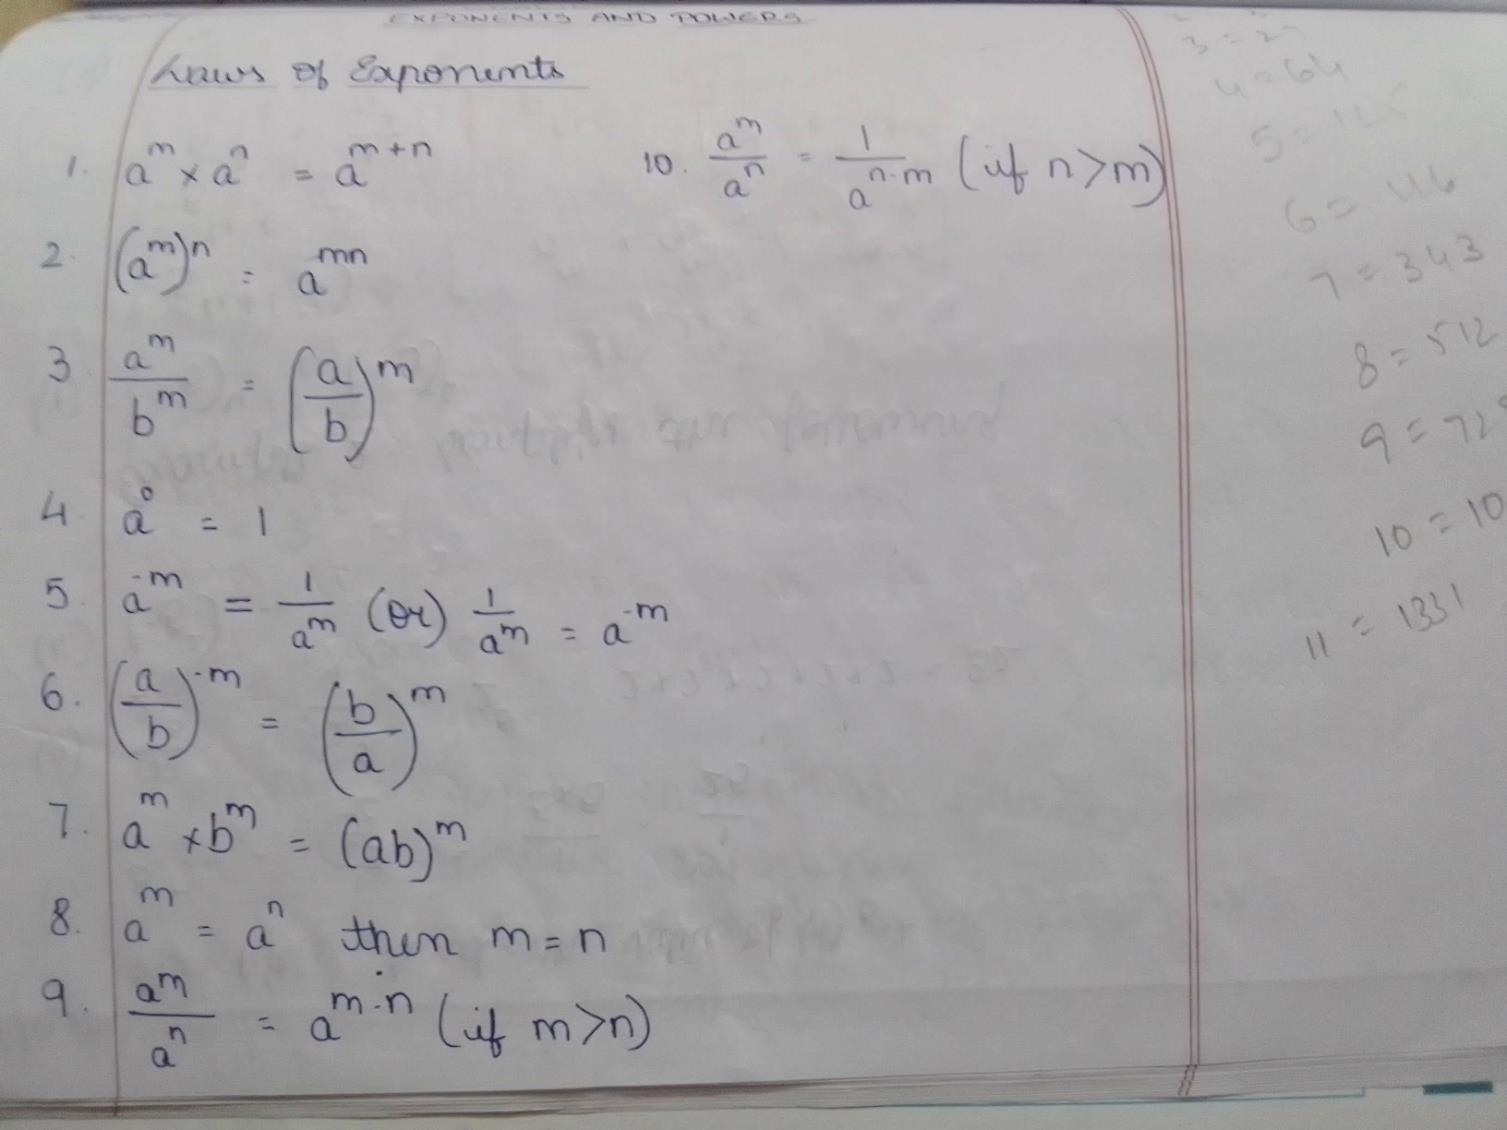 EXPONENTS AND POWERS
Laws of Exponents
1. a^m × a^n = a^(m+n)
2. (a^m)^n = a^(mn)
3 a^m/b^m = (a/b)^m
4 a^0 = 1
5 a^-m = 1/a^m (or) 1/a^m = a^-m
6. (a/b)^-m = (b/a)^m
7. a^m × b^m = (ab)^m
8. a^m = a^n then m = n
9. a^m/a^n = a^(m-n) (if m>n)
10. a^m/a^n = 1/a^(n-m) (if n>m)
3 = 27
4 = 64
5 =
6 =
7 = 343
8 = 512
9 = 72
10 = 10
11 = 1331